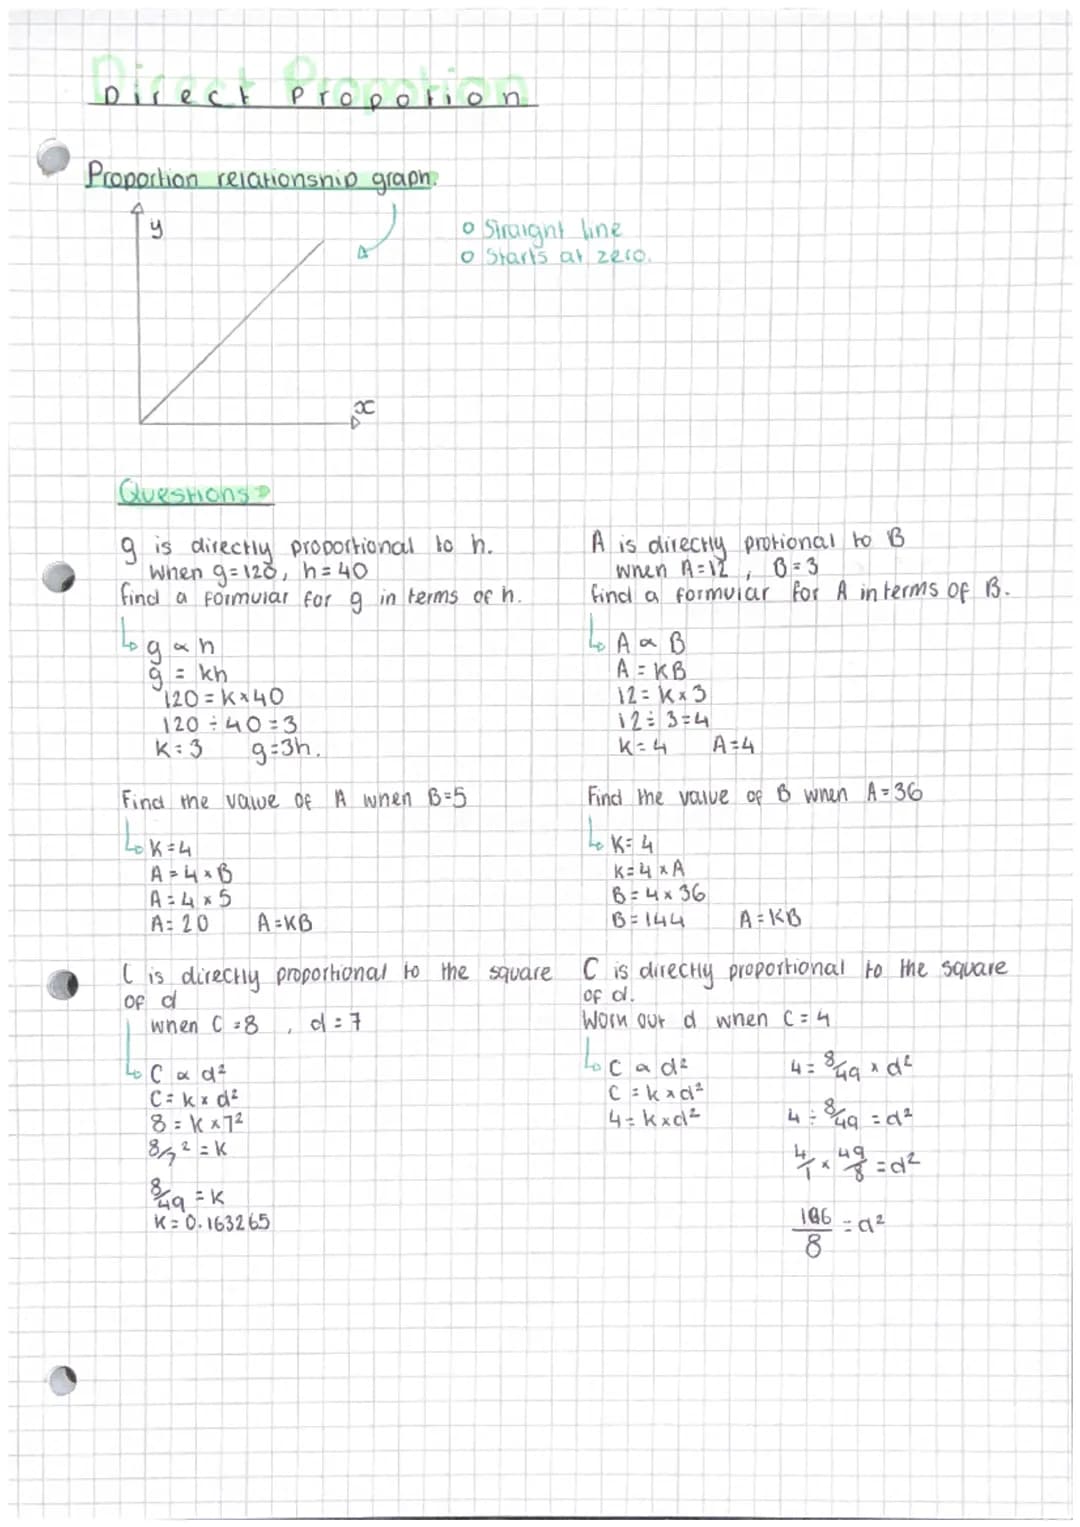 Direct Propotion
Proportion relationship graph.
y
o Straight line
o Starts at zero.
x
Questions
g is directly proportional to h.
when g=120, h=40
find a formular for g in terms of h.
g ∝ h
g = kh
120=k×40
120÷40=3
K=3 g=3h.
A is directly protional to B
when A=12, B=3
find a formular for A in terms of B.
A ∝ B
A=KB
12=K×3
12÷3=4
K=4 A=4
Find the value of A when B=5
K=4
A=4×B
A=4×5
A=20 A=KB
Find the value of B when A=36
K=4
K=4×A
B=4×36
B=144 A=KB
C is directly proportional to the square
of d
when C=8, d=7
C ∝ d²
C=k×d²
8=K×7²
8/7²=K
8/49=K
K=0.163265
C is directly proportional to the square
of d.
Work out d when C=4
C ∝ d²
C=k×d²
4=k×d²
4=8/49×d²
4÷8/49=d²
4/1×49/8=d²
196/8=d²